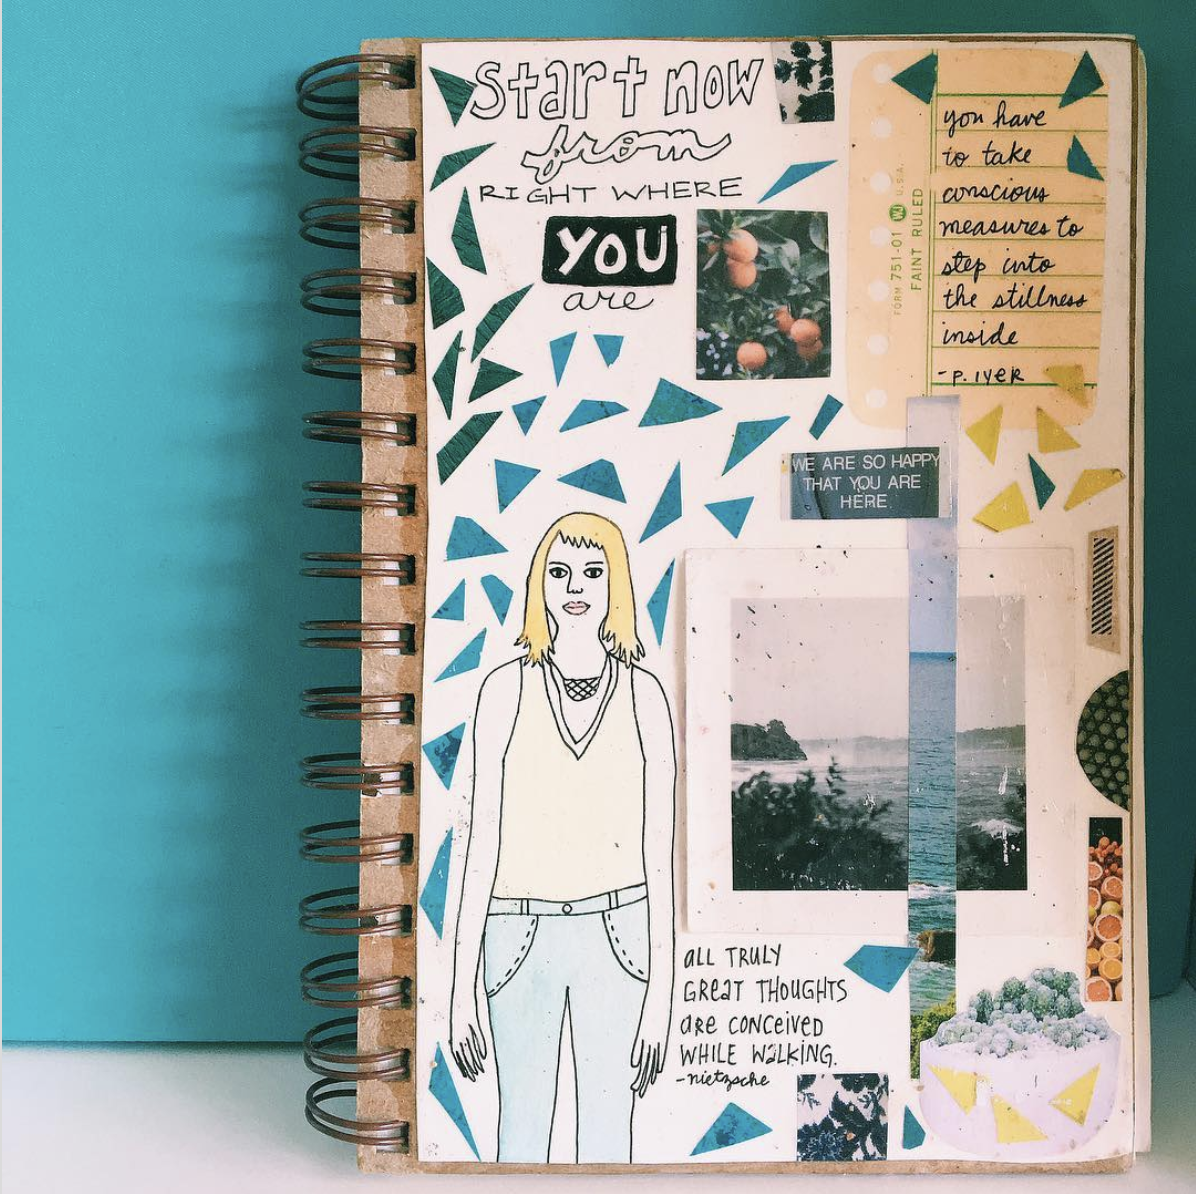 start now
from
RIGHT WHERE
YOU
are
you have
to take
conscious
measures to
step into
the stillness
inside
- P. IYER
FORM 751-01 WJ U.S.A.
FAINT RULED
WE ARE SO HAPPY
THAT YOU ARE
HERE.
aLL TRULY
GReaT THOUGHTS
aRe CONCeiVeD
WHiLE WaLKiNG.
- nietzsche